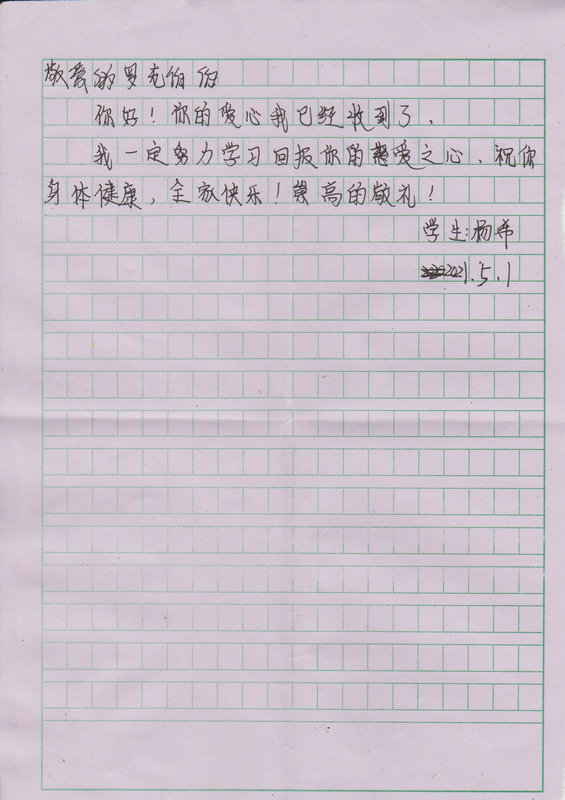 敬爱的罗克伯伯
你好！你的爱心我已经收到了，
我一定努力学习回报你的慈爱之心，祝你
身体健康，全家快乐！崇高的敬礼！
学生：杨希
2021.5.1